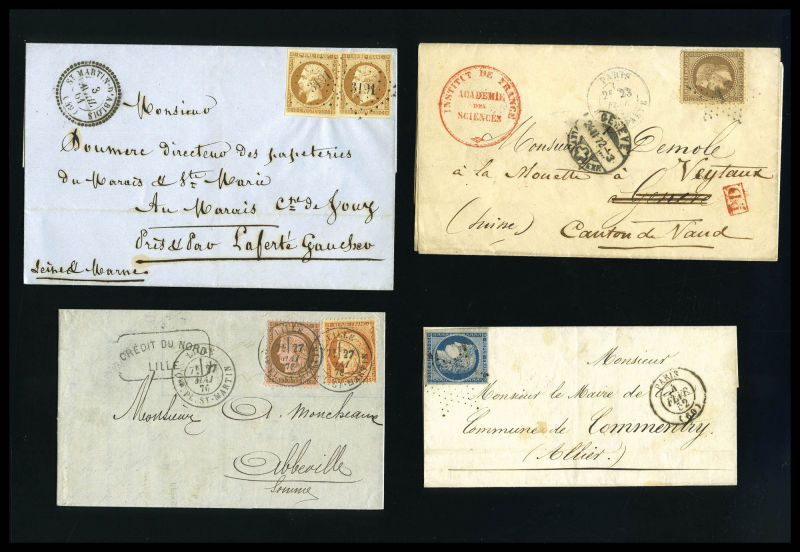 ST MARTIN-D'ABLOIS
3
3191
3191
Monsieur
Doumerc directeur des papeteries
du Marais & Ste Marie
Au Marais Cne de Jouy
Près & Par Laferté Gaucher
Seine & Marne
INSTITUT DE FRANCE
ACADÉMIE
DES
SCIENCES
PARIS
23
GENÈVE
Monsieur Demole
à la Mouette à Veytaux
à Genève
(Suisse)
Canton de Vaud
PD
CRÉDIT DU NORD
LILLE
LILLE
27
MAI
76
PL. ST-MARTIN
27
76
LILLE
27
76
Monsieur A. Moncheaux
Abbeville
Somme
PARIS
FEVR
52
(60)
Monsieur
Monsieur le Maire de
Commune de Commentry
(Allier)